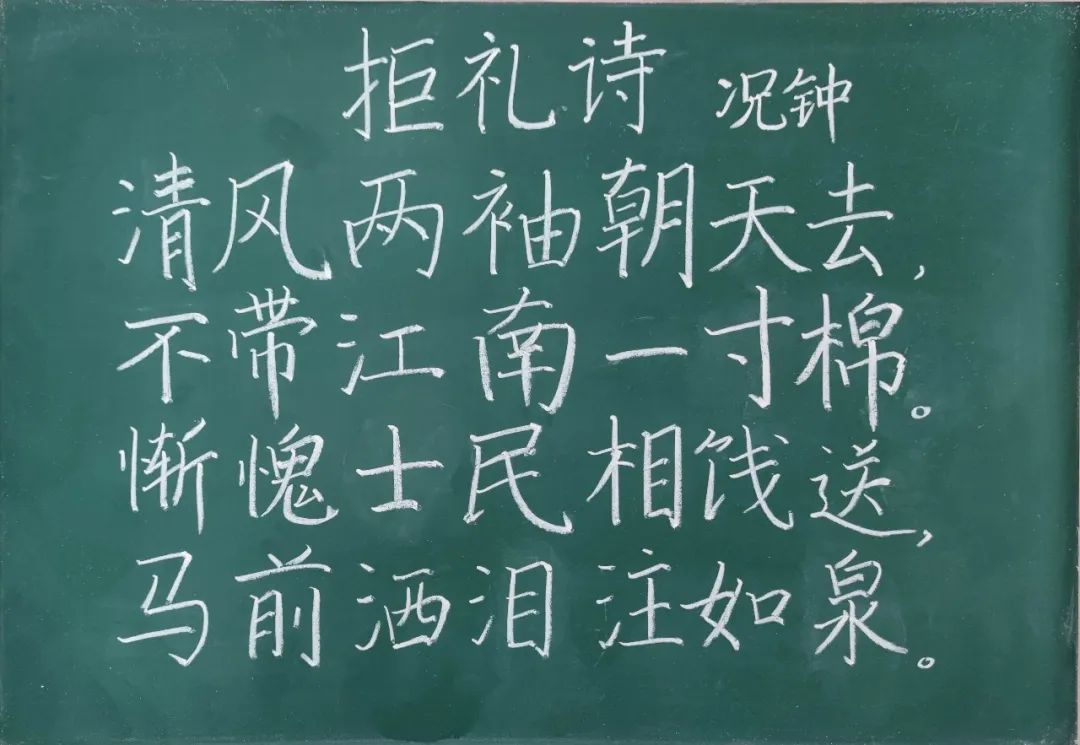 拒礼诗 况钟
清风两袖朝天去，
不带江南一寸棉。
惭愧士民相饯送，
马前洒泪注如泉。